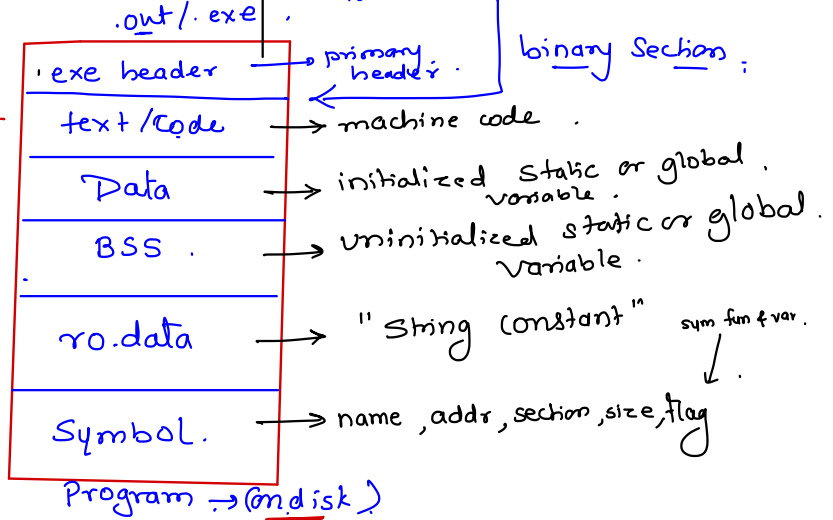 .out/.exe .
exe header → primary header. binary section :
text/code → machine code .
Data → initialized static or global . variable .
BSS . → uninitialized static or global . variable .
ro.data → "string constant" sym fun & var .
Symbol. → name, addr, section, size, flag
Program → (on disk)